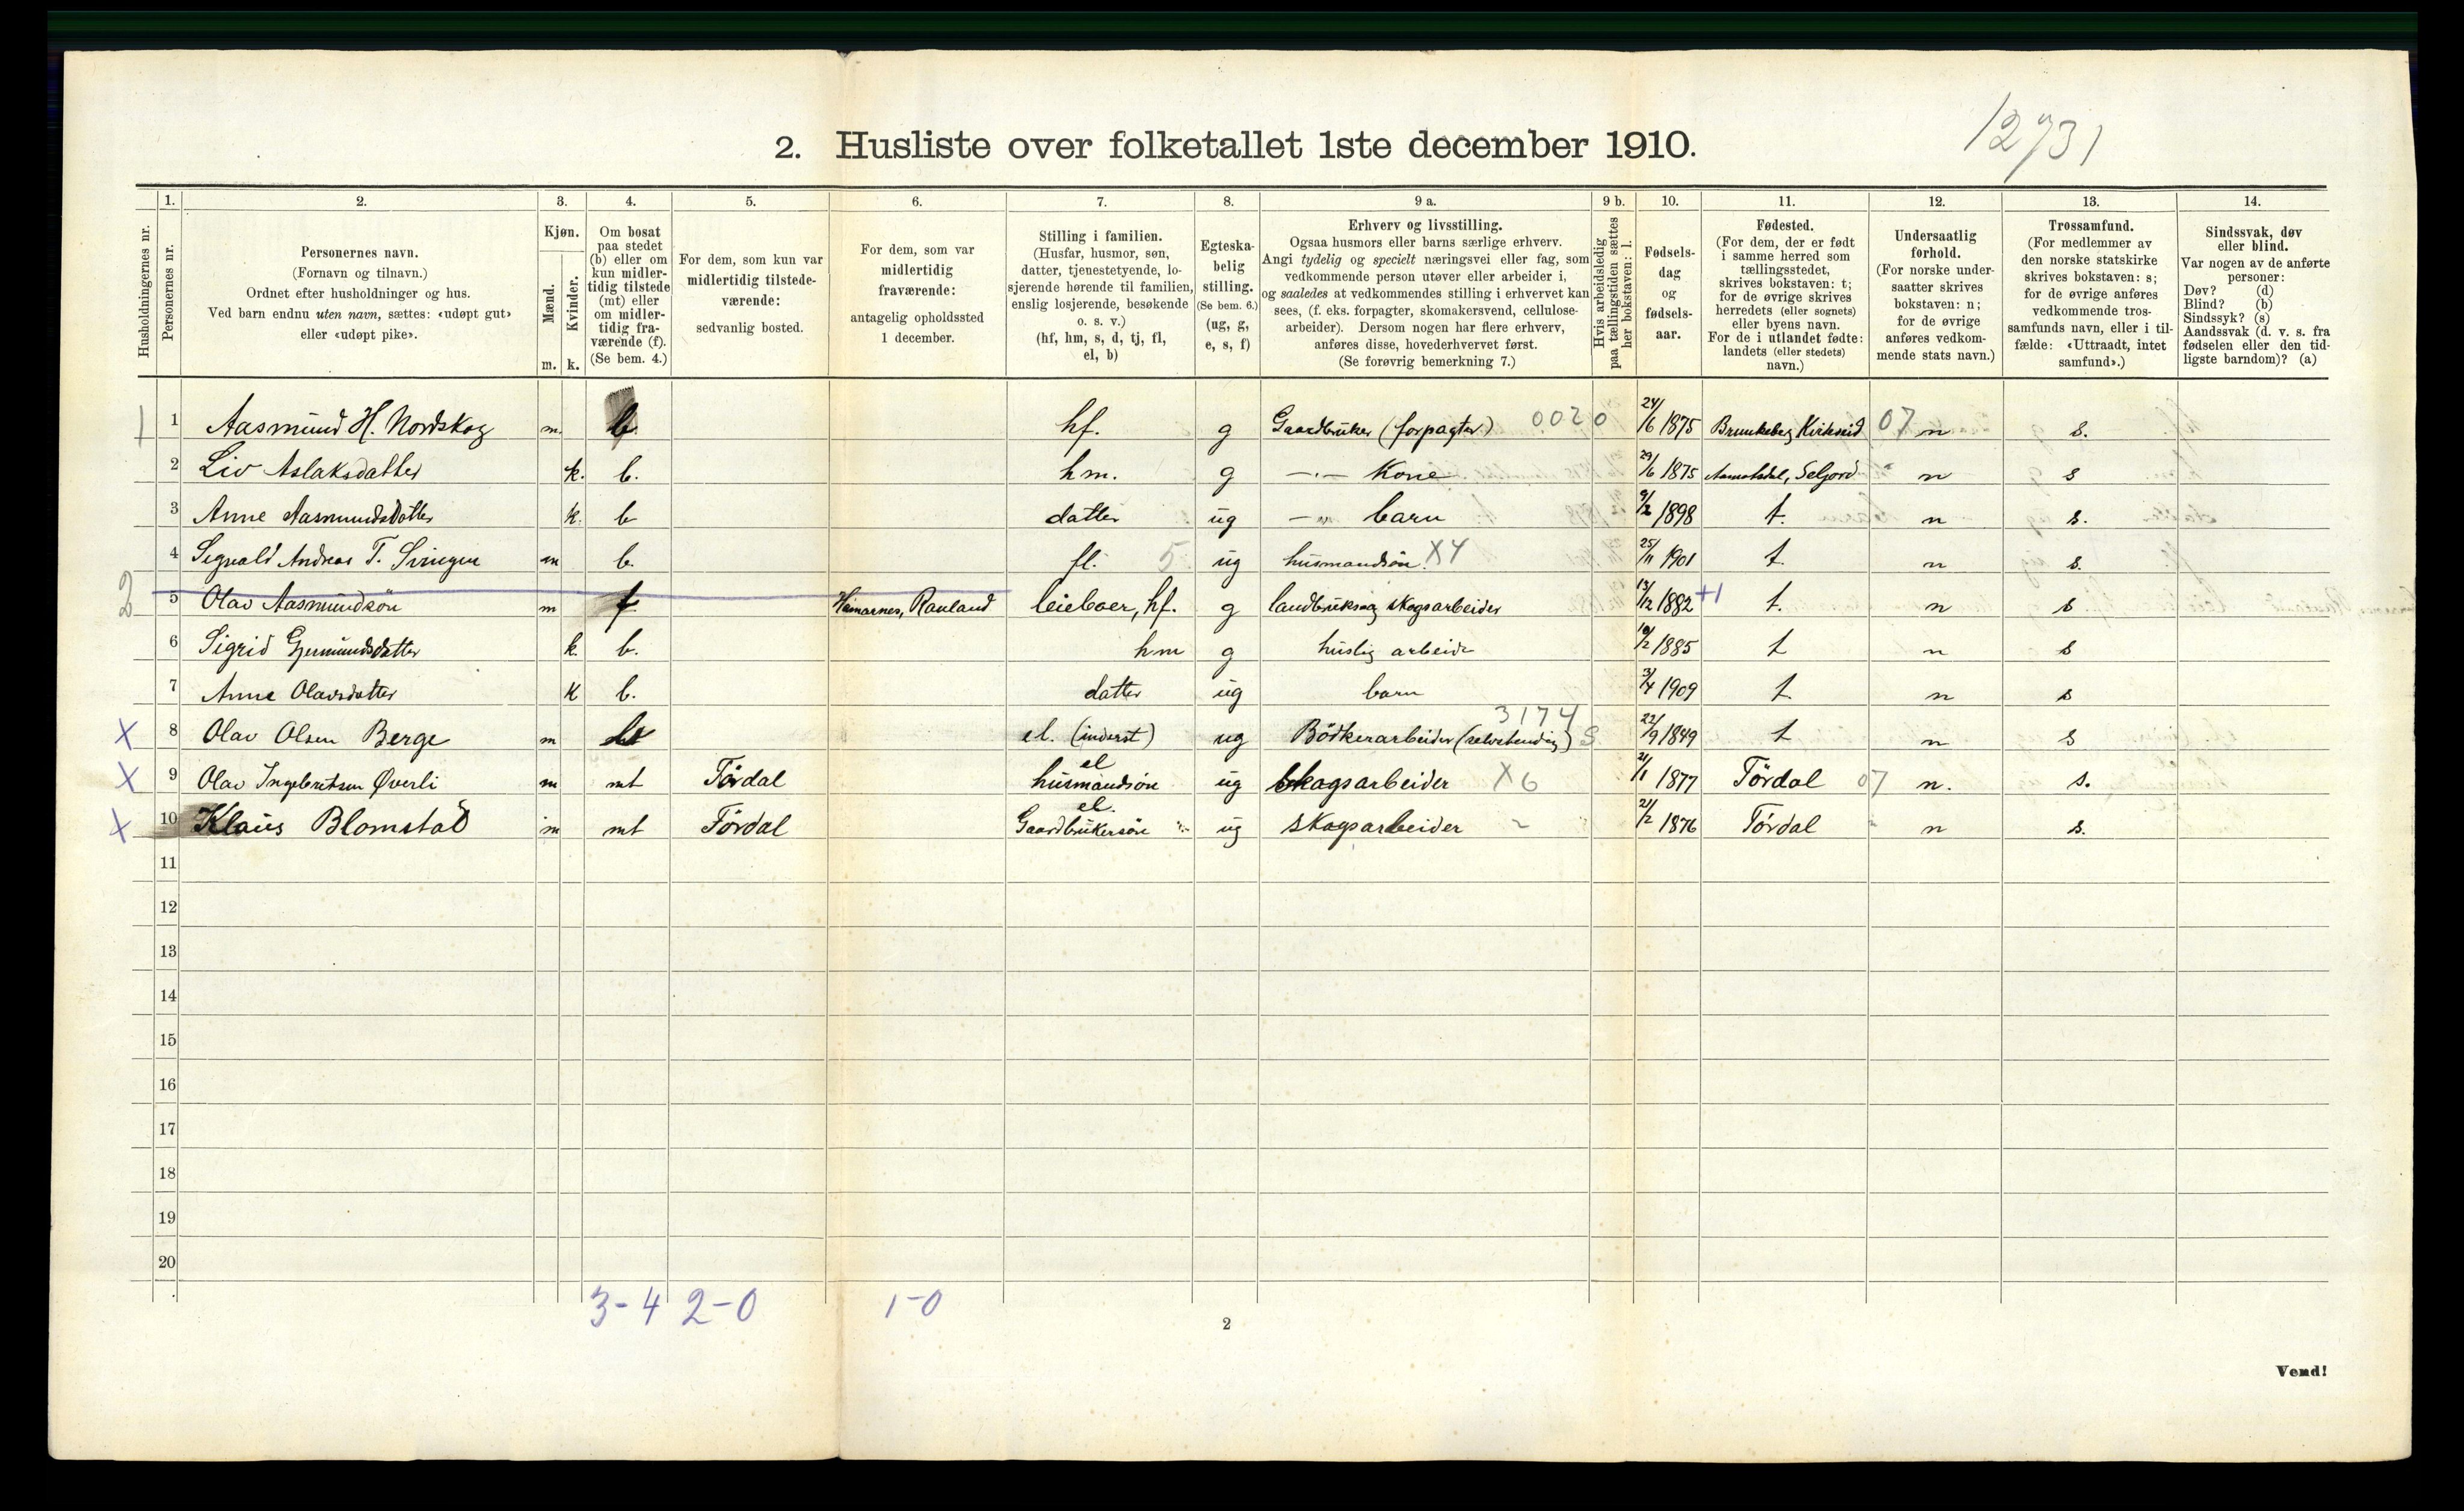 1273 1
2. Husliste over folketallet 1ste december 1910.
Husholdningernes nr.
1. Personernes nr.
2. Personernes navn.
(Fornavn og tilnavn.)
Ordnet efter husholdninger og hus.
Ved barn endnu uten navn, sættes: «udøpt gut»
eller «udøpt pike».
3. Kjøn.
Mænd. Kvinder.
m. k.
4. Om bosat
paa stedet
(b) eller om
kun midler-
tidig tilstede
(mt) eller
om midler-
tidig fra-
værende (f).
(Se bem. 4.)
5. For dem, som kun var
midlertidig tilstede-
værende:
sedvanlig bosted.
6. For dem, som var
midlertidig
fraværende:
antagelig opholdssted
1 december.
7. Stilling i familien.
(Husfar, husmor, søn,
datter, tjenestetyende, lo-
sjerende hørende til familien,
enslig losjerende, besøkende
o. s. v.)
(hf, hm, s, d, tj, fl,
el, b)
8. Egteska-
belig
stilling.
(Se bem. 6.)
(ug, g,
e, s, f)
9 a. Erhverv og livsstilling.
Ogsaa husmors eller barns særlige erhverv.
Angi tydelig og specielt næringsvei eller fag, som
vedkommende person utøver eller arbeider i,
og saaledes at vedkommendes stilling i erhvervet kan
sees, (f. eks. forpagter, skomakersvend, cellulose-
arbeider). Dersom nogen har flere erhverv,
anføres disse, hovederhvervet først.
(Se forøvrig bemerkning 7.)
9 b. Hvis arbeidsledig
paa tællingstiden sættes
her bokstaven: l.
10. Fødsels-
dag
og
fødsels-
aar.
11. Fødested.
(For dem, der er født
i samme herred som
tællingsstedet,
skrives bokstaven: t;
for de øvrige skrives
herredets (eller sognets)
eller byens navn.
For de i utlandet fødte:
landets (eller stedets)
navn.)
12. Undersaatlig
forhold.
(For norske under-
saatter skrives
bokstaven: n;
for de øvrige
anføres vedkom-
mende stats navn.)
13. Trossamfund.
(For medlemmer av
den norske statskirke
skrives bokstaven: s;
for de øvrige anføres
vedkommende tros-
samfunds navn, eller i til-
fælde: «Uttraadt, intet
samfund».)
14. Sindssvak, døv
eller blind.
Var nogen av de anførte
personer:
Døv? (d)
Blind? (b)
Sindssyk? (s)
Aandssvak (d. v. s. fra
fødselen eller den tid-
ligste barndom)? (a)
1 1 Aasmund H. Nordskog m. b. hf. g Gaardbruker (forpagter) 0020 24/6 1875 Brunkeberg Kviteseid 07 n s.
2 Liv Aslaksdatter k. b. hm. g –"– Kone 29/6 1875 Aamotsdal, Seljord n s
3 Anne Aasmundsdatter k. b datter ug –"– barn 9/2 1898 t. n s.
4 Signald Andreas T. Svingen m b. fl. 5 ug husmandsøn X4 25/11 1901 t. n s.
2 5 Olav Aasmundsøn m f Hamarnes, Rauland leieboer, hf. g landbruks og skogsarbeider 13/12 1882 +1 t. n s
6 Sigrid Gjermundsdatter k. b. hm g huslig arbeide 10/2 1885 t n s
7 Anne Olavsdatter k b. datter ug barn 3/4 1909 t. n s
X 8 Olav Olsen Berge m b el. (inderst) ug Bödkerarbeider (selvstændig) 3174 S 22/9 1849 t n s
X 9 Olav Ingebretsen Øverli m mt Tördal el husmandsön ug Skogsarbeider X6 21/1 1877 Tördal 07 n. s.
X 10 Klaus Blomstad m mt Tördal el. Gaardbrukersön ug skogsarbeider 21/2 1876 Tördal n s.
11
12
13
14
15
16
17
18
19
20
3-4 2-0 1-0
2
Vend!